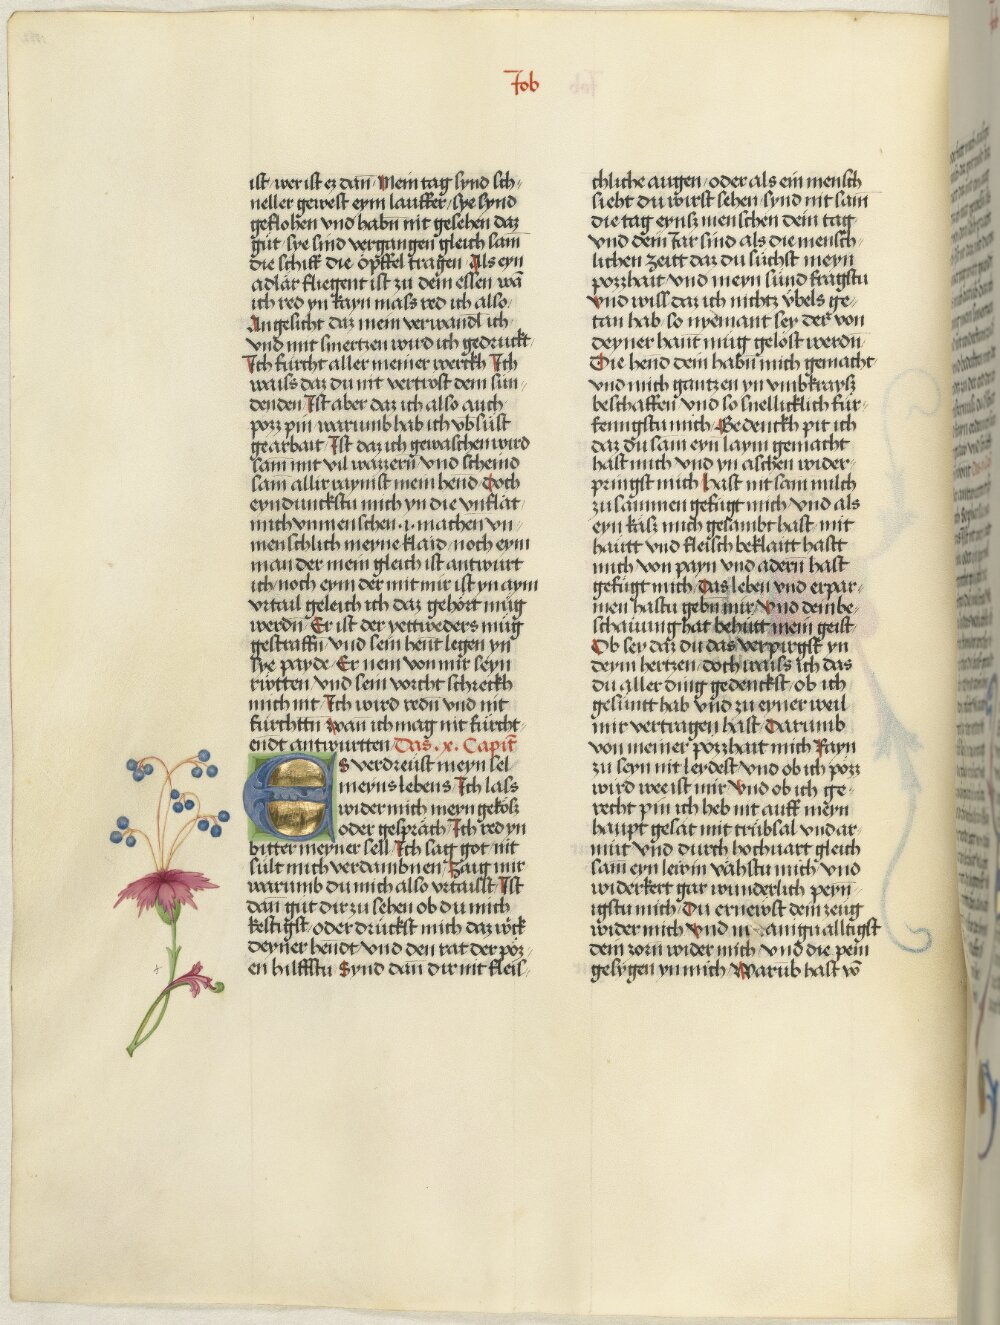 Job
ist / wer ist es dan̄ / Mein tag synd sch-
neller gewest eym lauffer / sye synd
geflohen vnd habn̄ nit gesehen daz
gůt / sye sind vergangen gleich sam
die schiff die ȯpffel tragen Als eyn
adlar fliegent ist zu dem essen wā
ich red yn kayn mass red ich also /
Angesicht daz mein verwandl ich /
vnd mit smertzen wird ich gedruckt /
Ich furcht aller meiner werckh Ich
waiss daz du nit vertrost dem sun-
denden / Ist aber daz ich also auch
pozz pin warumb hab ich vbsust
gearbait / Ist daz ich gewaschen wird
sam mit vil wazzern̄ vnd scheind
sam allir raynist mein hend / Doch
eyndunckstu mich yn die vnflat /
mich vnmenschen .i. machen vn-
menschlich meyne klaid / noch eym
man der mein gleich ist antwurt
ich / noch eym der mit mir ist yn aym
vrtail geleich ich daz gehort mug
werdn̄ / Er ist der yettweders mug
gestraffn̄ / vnd sein hent legen yn
sye payde / Er nem von mir seyn
rwtten / vnd sein vorcht schreckh
mich nit / Ich wird redn̄ vnd nit
furchttn̄ / wan̄ ich mag nit furcht-
endt antwurtten / Das .x. Capit̄
Es verdreust meyn sel
meyns lebens / Ich lass
wider mich meyn gekosz
oder gesprach / Ich red yn
bitter meyner sell / Ich sag got / nit
sult mich verdambnen / Zaig mir
warumb du mich also vrtailst / Ist
dan̄ gut dir zu sehen ob du mich
kestigst / oder druckst mich daz wẽk
deyner hendt / vnd den rat der poz-
en hilffstu / Synd dan̄ dir nit fleis-
chliche augen / oder als ein mensch
sieht du wirst sehen / synd nit sam
die tag eyns menschen dein tag /
vnd dein Jar sind als die mensch-
lichen zeitt daz du suchst meyn
pozzhait / vnd meyn sund fragstu
vnd wiss daz ich nichtz vbels ge-
tan hab / so nyemant sey der von
deyner hant mug gelost werdn̄
Die hend dein habn̄ mich gemacht
vnd mich gantzen yn vmbkraysz
beschaffen / vnd so snellicklich fur-
kennigstu mich / Gedenckh pit ich
daz du sam eyn laym gemacht
hast mich / vnd yn aschen wider-
pringst mich / hast nit sam milch
zusammen gefugt mich / vnd als
eyn kasz mich gesambt hast / mit
hautt vnd fleisch beklaitt hastt
mich / von payn vnd adern̄ hast
gefugt mich / Das leben vnd erpar-
men hastu gebn̄ mir / vnd dein be-
schawung hat behutt mein geist /
Ob sey daz du das verpirgst yn
deym hertzen / doch waiss ich das
du aller ding gedenckst / ob ich
gesunt hab vnd zu eyner weil
mir vertragen hast / Darumb
von meiner pozzhait mich Rayn
zu seyn nit leydest / vnd ob ich pozz
wird / wee ist mir / vnd ob ich ge-
recht pin ich heb nit auff meyn
haupt / gesat mit trubsal vnd ar-
mut / Vnd durch hochuart gleich
sam eyn lewin vahstu mich / vnd
widerkert gar wunderlich peyn-
igstu mich / Du ernewst dein zeug
wider mich / vnd manigualtigst
dein zorn̄ wider mich / vnd die pein
gesygen yn mich / Warub hast vō